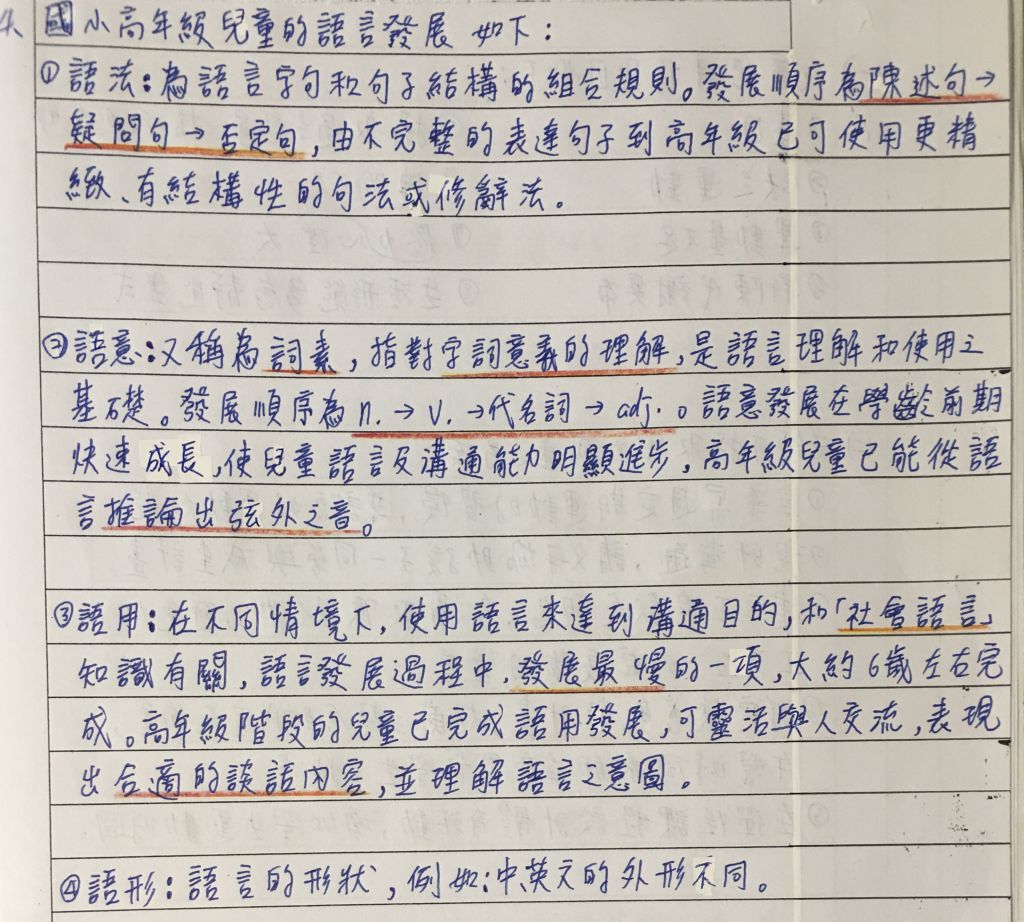 4、國小高年級兒童的語言發展如下：
①語法：為語言字句和句子結構的組合規則。發展順序為陳述句→
疑問句→否定句，由不完整的表達句子到高年級已可使用更精
緻、有結構性的句法或修辭法。
②語意：又稱為詞素，指對字詞意義的理解，是語言理解和使用之
基礎。發展順序為n.→v.→代名詞→adj.。語意發展在學齡前期
快速成長，使兒童語言及溝通能力明顯進步，高年級兒童已能從語
言推論出弦外之音。
③語用：在不同情境下，使用語言來達到溝通目的，和「社會語言」
知識有關，語言發展過程中，發展最慢的一項，大約6歲左右完
成。高年級階段的兒童已完成語用發展，可靈活與人交流，表現
出合適的談話內容，並理解語言之意圖。
④語形：語言的形狀，例如：中英文的外形不同。